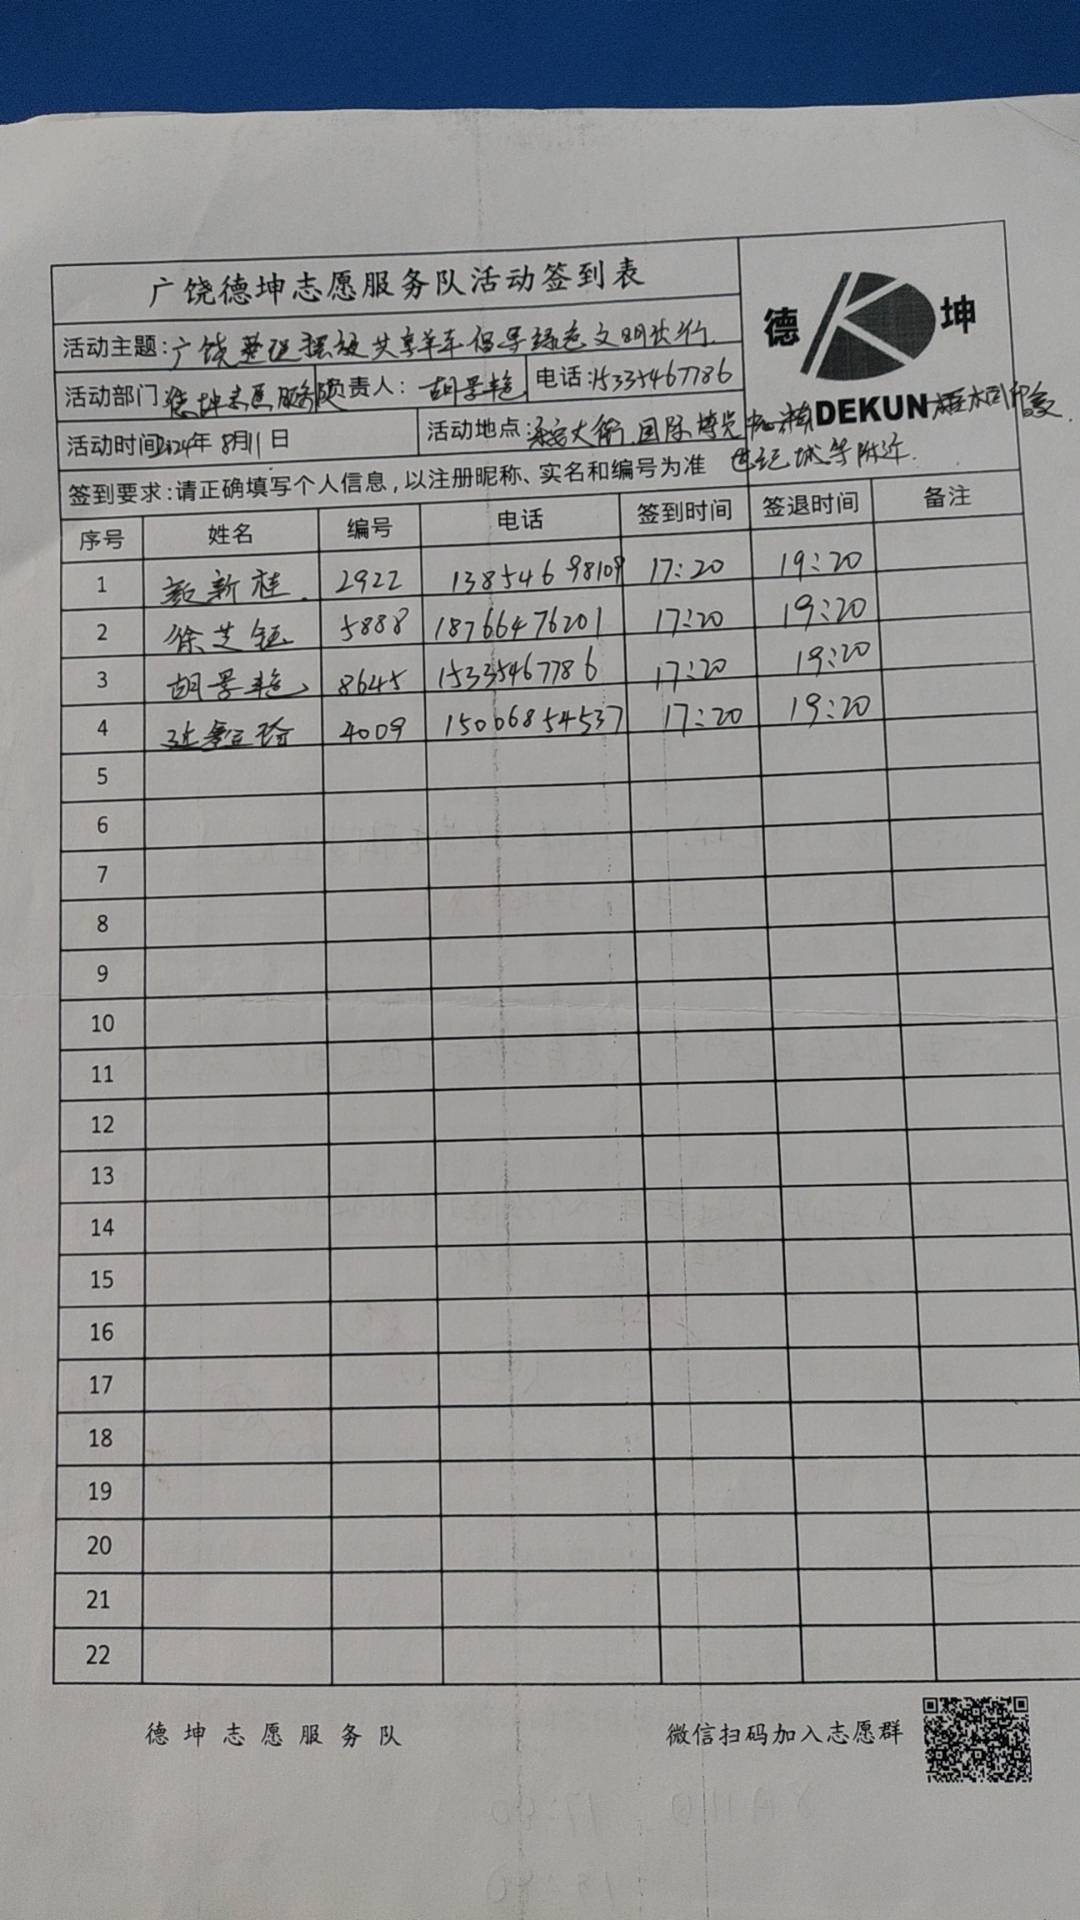 广饶德坤志愿服务队活动签到表
德 坤
DEKUN
活动主题:广饶整理摆放共享单车倡导绿色文明出行.
活动部门 德坤志愿服务队 负责人: 胡景艳 电话:15335467786
活动时间2024年 8月11日 活动地点: 乐安大街.国际博览中心 梧桐印象
世纪城等附近.
签到要求:请正确填写个人信息,以注册昵称、实名和编号为准
序号 姓名 编号 电话 签到时间 签退时间 备注
1 新桂. 2922 13854698109 17:20 19:20
2 徐芝钰 5888 18766476201 17:20 19:20
3 胡景艳 8645 15335467786 17:20 19:20
4 4009 15006854537 17:20 19:20
5
6
7
8
9
10
11
12
13
14
15
16
17
18
19
20
21
22
德坤志愿服务队 微信扫码加入志愿群